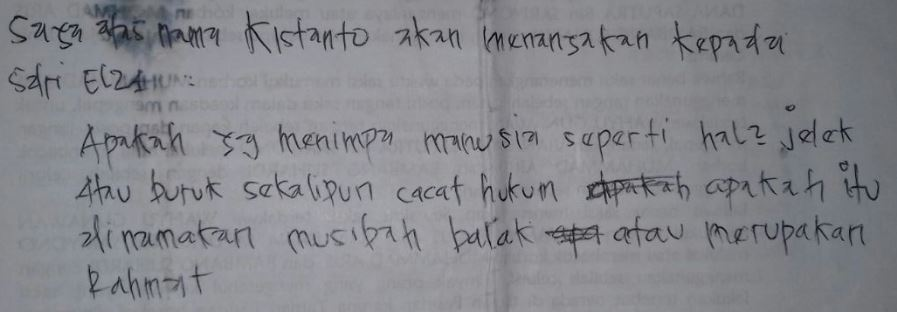 Saya atas nama Kistanto akan menanyakan kepada
Sdri Elza
Apakah yg menimpa manusia seperti hal2 jelek
atau buruk sekalipun cacat hukum apakah itu
dinamakan musibah balak atau merupakan
Rahmat